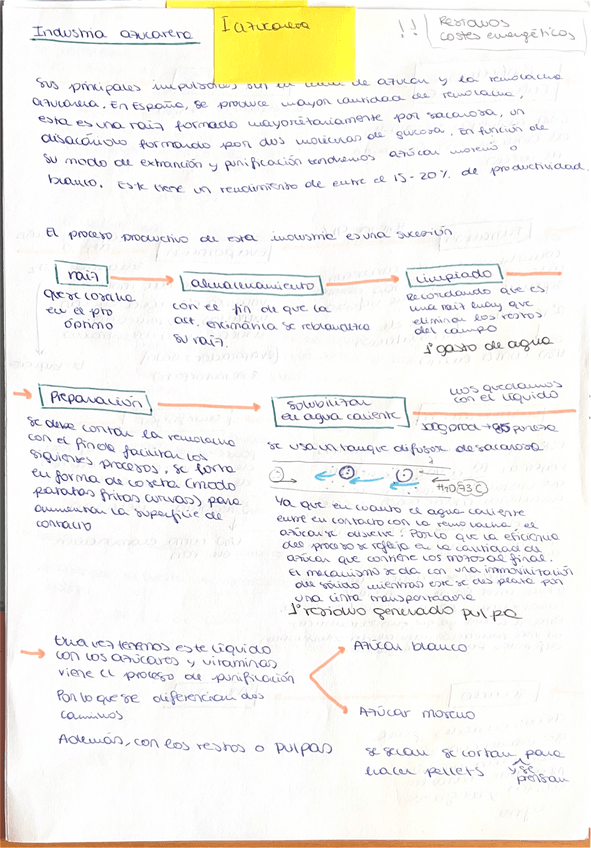 Industria azucarera
I azucarera
!! Residuos
costes energéticos
Sus principales impulsores son la caña de azúcar y la remolacha
azucarera. En España, se produce mayor cantidad de remolacha,
esta es una raiz formado mayoritariamente por sacarosa, un
disacárido formando por dos moléculas de glucosa. En función de
su modo de extracción y purificación tendremos azúcar moreno o
blanco. Este tiene un rendimiento de entre el 15-20% de productividad.
El proceso productivo de esta industria es una sucesión
raiz
almacenamiento
Limpiado
que se cosecha
en el pto
óptimo
con el fin de que la
act. enzimática se reblandezca
su raiz.
Recordando que es
una raiz hay que
eliminar los restos
del campo
1º gasto de agua
Preparación
solubilizar
en agua caliente
nos quedamos
con el líquido
pureza
Se debe cortar la remolacha
con el fin de facilitar los
siguientes procesos, se corta
en forma de coseta (modo
patatas fritas curvas) para
aumentar la superficie de
contacto
se usa un tanque difusor de sacarosa
H2O 73ºC
Ya que en cuanto el agua caliente
entre en contacto con la remolacha, el
azúcar se disuelve. Por lo que la eficiencia
del proceso se refleja en la cantidad de
azúcar que contiene los motos al final.
El mecanismo se da con una inmovilización
del sólido mientras este se desplaza por
una cinta transportadora
1º residuo generado pulpa
Una vez tenemos este líquido
con los azúcares y vitaminas
viene el proceso de purificación
Por lo que se diferencian dos
caminos
Azúcar blanco
Azúcar moreno
Además, con los restos o pulpas
se secan se cortan para
hacer pellets y se
prensan